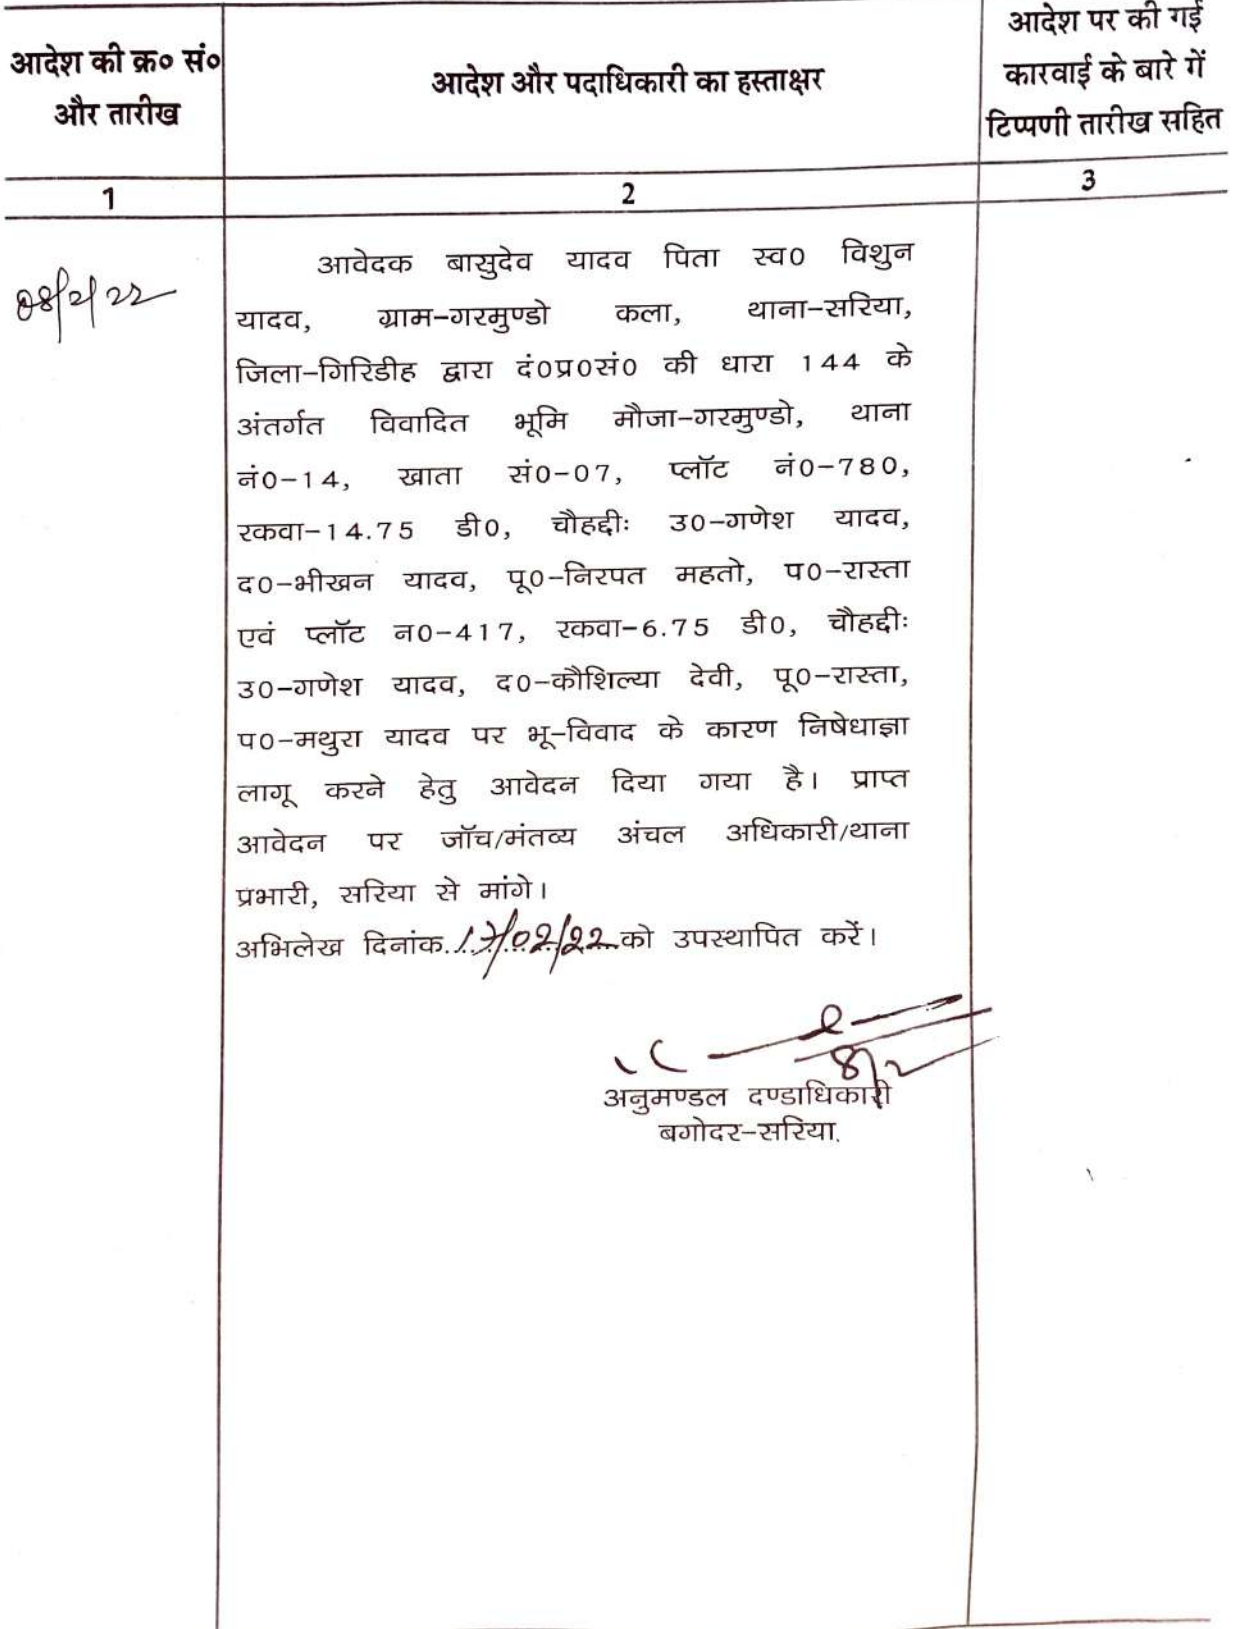 आदेश की क्र० सं०
और तारीख
आदेश और पदाधिकारी का हस्ताक्षर
आदेश पर की गई
कारवाई के बारे गें
टिप्पणी तारीख सहित
1
2
3
08/2/22
आवेदक बासुदेव यादव पिता स्व0 विशुन
यादव, ग्राम-गरमुण्डो कला, थाना-सरिया,
जिला-गिरिडीह द्वारा दं0प्र0सं0 की धारा 144 के
अंतर्गत विवादित भूमि मौजा-गरमुण्डो, थाना
नं0-14, खाता सं0-07, प्लॉट नं0-780,
रकवा-14.75 डी0, चौहद्दीः उ0-गणेश यादव,
द0-भीखन यादव, पू0-निरपत महतो, प0-रास्ता
एवं प्लॉट न0-417, रकवा-6.75 डी0, चौहद्दीः
उ0-गणेश यादव, द0-कौशिल्या देवी, पू0-रास्ता,
प0-मथुरा यादव पर भू-विवाद के कारण निषेधाज्ञा
लागू करने हेतु आवेदन दिया गया है। प्राप्त
आवेदन पर जॉच/मंतव्य अंचल अधिकारी/थाना
प्रभारी, सरिया से मांगे।
अभिलेख दिनांक..17/02/22..को उपस्थापित करें।
8/2
अनुमण्डल दण्डाधिकारी
बगोदर-सरिया.